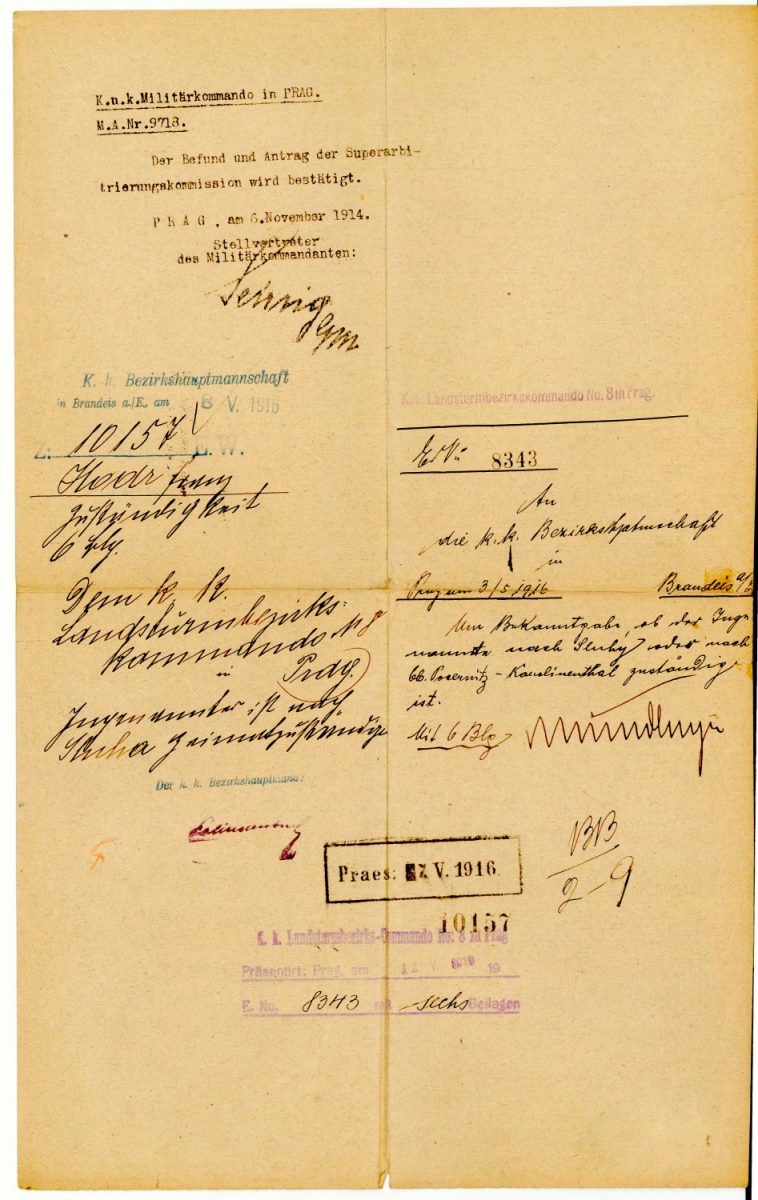 K.u.k.Militärkommando in PRAG.
M.A.Nr.9718.
Der Befund und Antrag der Superarbi-
trierungskommission wird bestätigt.
P R A G , am 6.November 1914.
Stellvertreter
des Militärkommandanten:
GM
K. k. Bezirkshauptmannschaft
in Brandeis a./E., am 8 V. 1916
Z: 10157 E. W.
Hodr Franz
Zuständigkeit
6 Blg.
Dem k. k.
Landsturmbezirks-
kommando No 8
in
Prag.
Ingenannter ist nach
Sluha heimatzuständig
Der k. k. Bezirkshauptmann:
K.k. Landsturmbezirkskommando No. 8 in Prag.
E. No 8343
An
die k. k. Bezirkshptmschaft
in
Prag am 3/5 1916 Brandeis a/E
Um Bekanntgabe, ob der Inge-
nannte nach Sluhy oder nach
Pocernitz - Karolinenthal zuständig
ist.
Mit 6 Blg
BB
2-9
Praes: 7. V. 1916.
10157
K. k. Landsturmbezirks-Commando No. 8 zu Prag
Präsentirt: Prag, am 12 V. 1916 19
E. No. 8343 mit sechs Beilagen